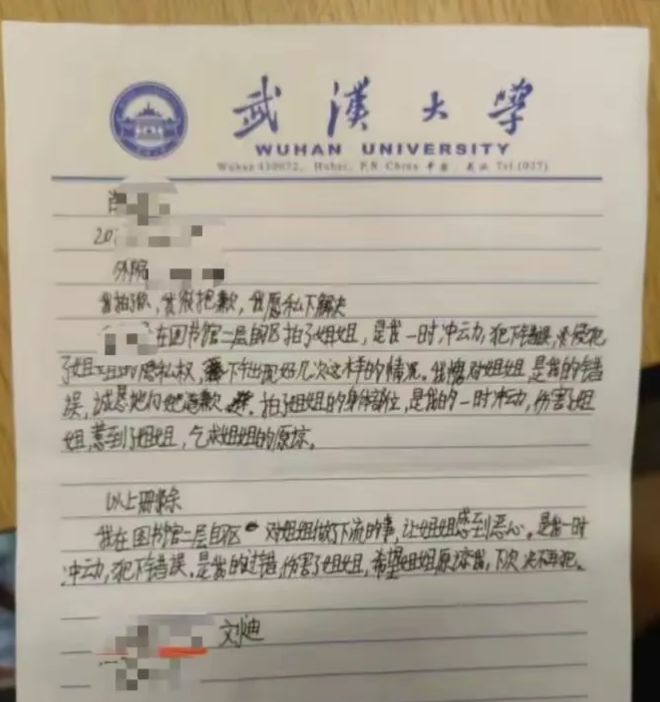 武漢大學
WUHAN UNIVERSITY
Wuhan 430072, Hubei, P.R. China 中国·武汉 Tel.(027)
肖
20
外院
我拍了你,我很抱歉,我愿私下解决
在图书馆二层自习区拍了姐姐,是我一时冲动,犯下错误,侵犯
了姐姐的隐私权,下午出现好几次这样的情况。我愧对姐姐,是我的错
误,诚恳地向她道歉。拍了姐姐的身体部位,是我的一时冲动,伤害了姐
姐,惹到了姐姐,乞求姐姐的原谅。
以上删除
我在图书馆二层自习区对姐姐做了下流的事,让姐姐感到恶心。是我一时
冲动,犯下错误,是我的过错,伤害了姐姐,希望姐姐原谅我,下次决不再犯。